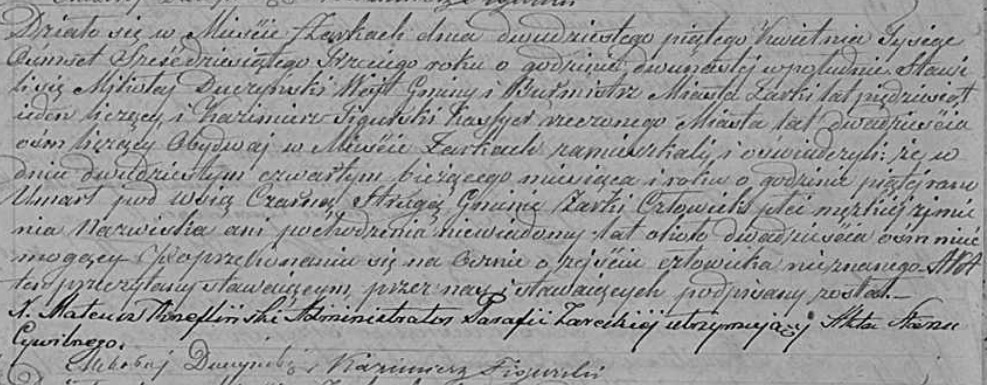 Działo się w Mieście Żarkach dnia dwudziestego piątego Kwietnia Tysiąc
Ośmset Sześćdziesiątego trzeciego roku o godzinie dwunastej w południe. Stawi
li się Mikołaj Duczyński Wójt Gminy i Burmistrz Miasta Żarki lat pięćdziesiąt
ieden liczący i Kazimierz Figurski Kassyer rzeczonego Miasta lat dwadzieścia
ośm liczący Obydwaj w Mieście Żarkach zamieszkali, i oswiadczyli: iż w
dniu dwudziestym czwartym bieżącego miesiąca i roku o godzinie piątej rano
Umarł pod wsią Czarną Strugą Gminie Żarki Człowiek płci męzkiéj z imie
nia Nazwiska ani pochodzenia niewiadomy lat około dwadzieścia ośm mieć
mogący Po przekonaniu się na Ocznie o zejściu człowieka nieznanego. Akt
ten przeczytany stawaiącym, przez nas i stawaiących podpisany został.—
X. Mateusz Administrator Parafii Zareckiéj utrzymujący Akta Stanu
Cywilnego.
Mikołaj Duczyński Kazimierz Figurski